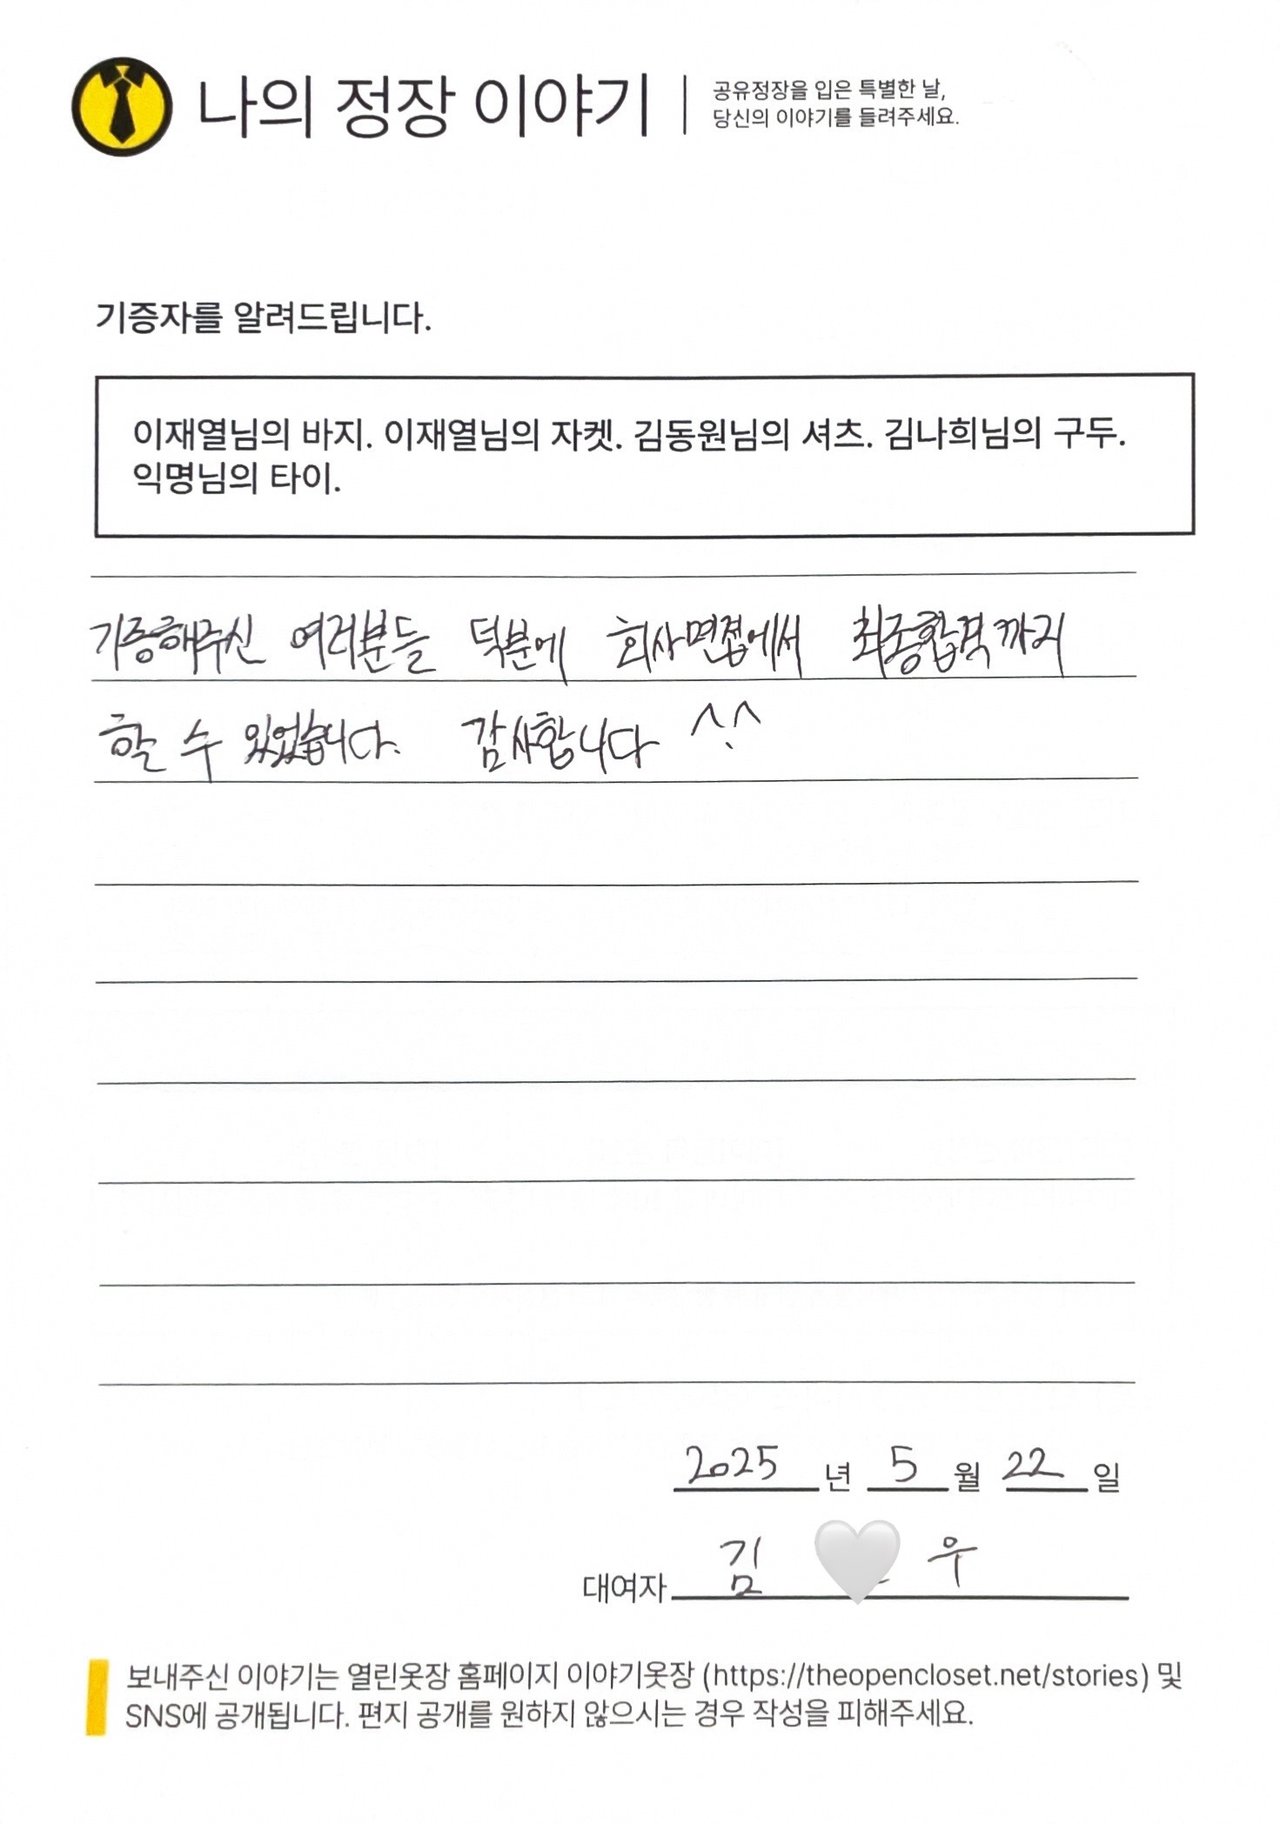 나의 정장 이야기
공유정장을 입은 특별한 날,
당신의 이야기를 들려주세요.
기증자를 알려드립니다.
이재열님의 바지. 이재열님의 자켓. 김동원님의 셔츠. 김나희님의 구두.
익명님의 타이.
기증해주신 여러분들 덕분에 회사면접에서 최종합격까지
할 수 있었습니다. 감사합니다 ^.^
2025 년 5 월 22 일
대여자 김 우
보내주신 이야기는 열린옷장 홈페이지 이야기옷장 (https://theopencloset.net/stories) 및
SNS에 공개됩니다. 편지 공개를 원하지 않으시는 경우 작성을 피해주세요.